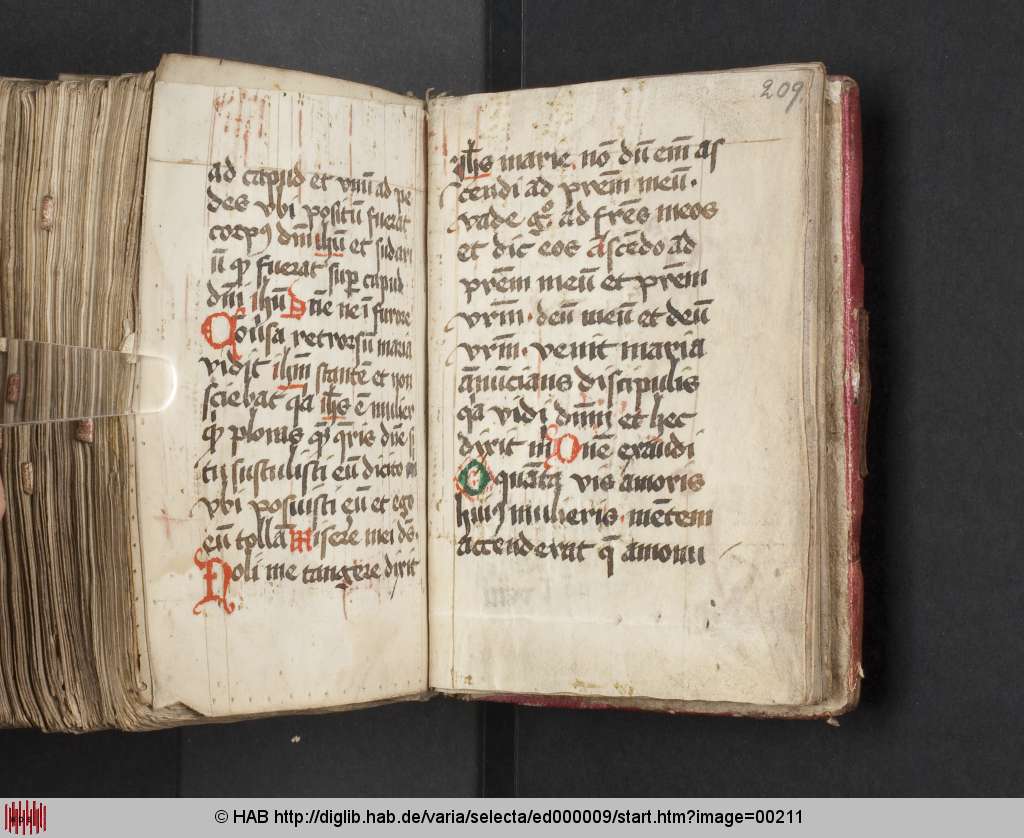 ad capud et vnū ad pe
des vbi positū fuerat
corpꝰ dm̄i ihū et sudari
ū qͥ fuerat sup capud
dm̄i ihū Dn̄e ne ī furore
Cōūsa retrorsū maria
vidit ihm̄ stantē et non
sciebat qͥa ihs̄ ē mulier
qͥd ploras qͥd qͥris dn̄e si
tu sustulisti eū dicito m
vbi posuisti eū et ego
eū tollā Misere mei ds̄.
Noli me tangere dixit
ihs̄ marie. nō dū em̄ as
cendi ad prēm meū.
vade gͦ ad frēs meos
et dic eos ascēdo ad
prēm meū et prēm
vrm̄. deū meū et deū
vrm̄. venit maria
ānūcians discipulis
qͥa vidi dm̄m et hec
dixit m̄ Dn̄e exaudi
O quāta vis amoris
huiꝰ mulieris mētem
accenderat q̄ amonu
209.
© HAB http://diglib.hab.de/varia/selecta/ed000009/start.htm?image=00211